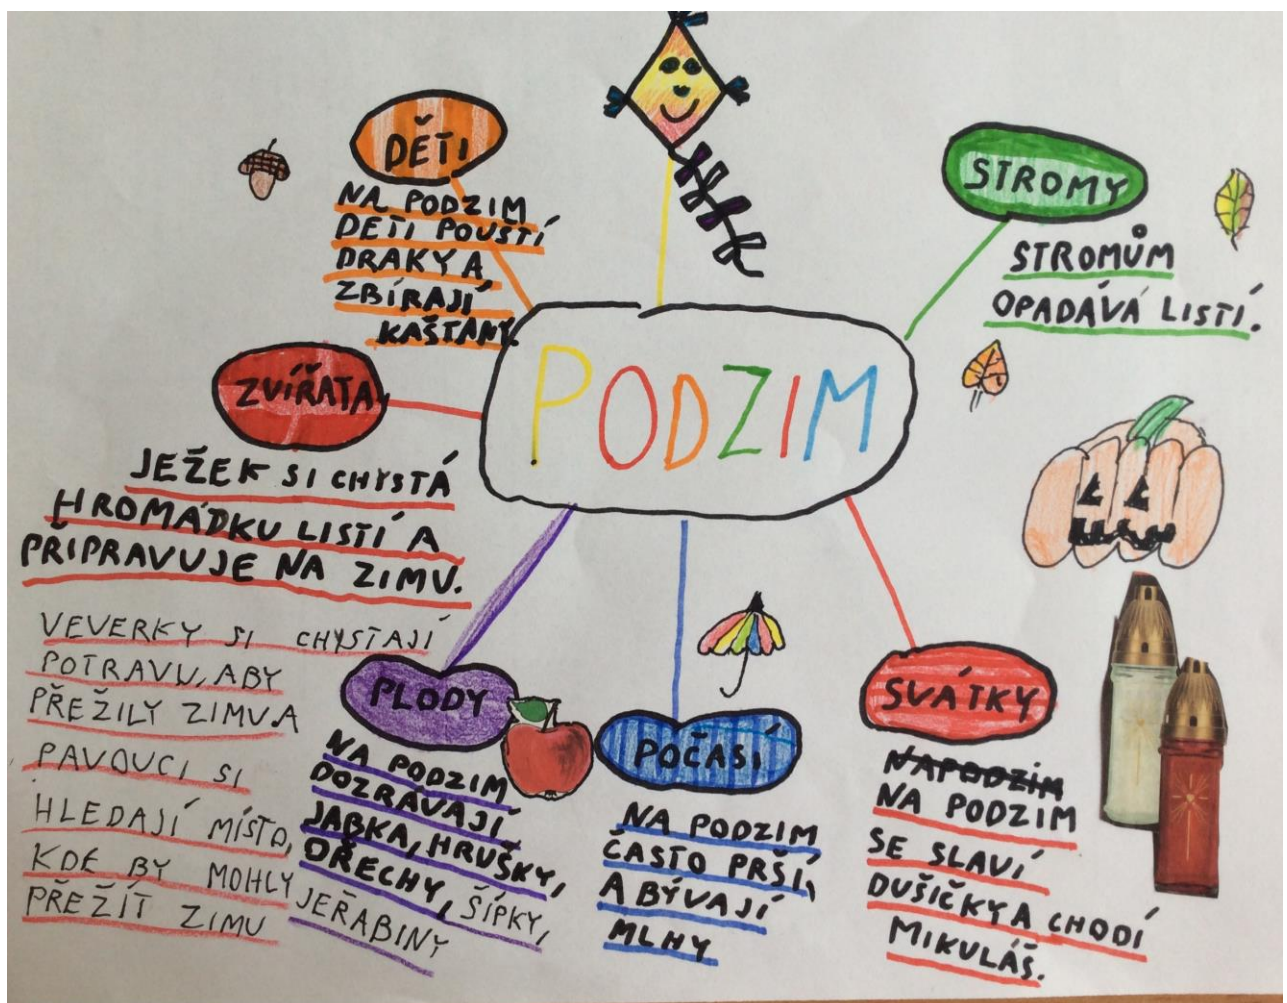 DĚTI
NA PODZIM
DĚTI POUŠTÍ
DRAKY A
ZBÍRAJÍ
KAŠTANY.
STROMY
STROMŮM
OPADÁVÁ LISTÍ.
PODZIM
ZVÍŘATA
JEŽEK SI CHYSTÁ
HROMÁDKU LISTÍ A
PŘIPRAVUJE NA ZIMU.
VEVERKY SI CHYSTAJÍ
POTRAVU, ABY
PŘEŽILY ZIMU A
PAVOUCI SI
HLEDAJÍ MÍSTO,
KDE BY MOHLY
PŘEŽÍT ZIMU
PLODY
NA PODZIM
DOZRÁVAJÍ
JABKA, HRUŠKY,
OŘECHY, ŠÍPKY,
JEŘABINY
POČASÍ
NA PODZIM
ČASTO PRŠÍ,
A BÝVAJÍ
MLHY
SVÁTKY
NAPODZIM
NA PODZIM
SE SLAVÍ
DUŠIČKY A CHODÍ
MIKULÁŠ.